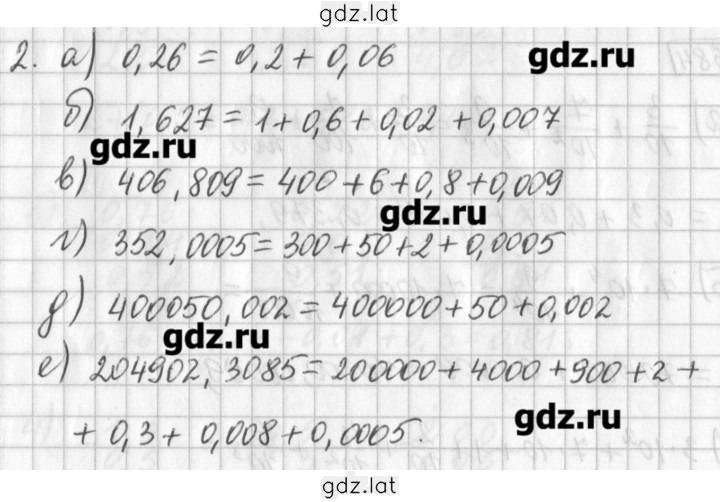 gdz.lat
2. а) 0,26 = 0,2 + 0,06
gdz.ru
б) 1,627 = 1 + 0,6 + 0,02 + 0,007
gdz.ru
в) 406,809 = 400 + 6 + 0,8 + 0,009
gdz.ru
г) 352,0005 = 300 + 50 + 2 + 0,0005
д) 400050,002 = 400000 + 50 + 0,002
gdz.ru
е) 204902,3085 = 200000 + 4000 + 900 + 2 +
+ 0,3 + 0,008 + 0,0005.
gdz.ru
gdz.lat